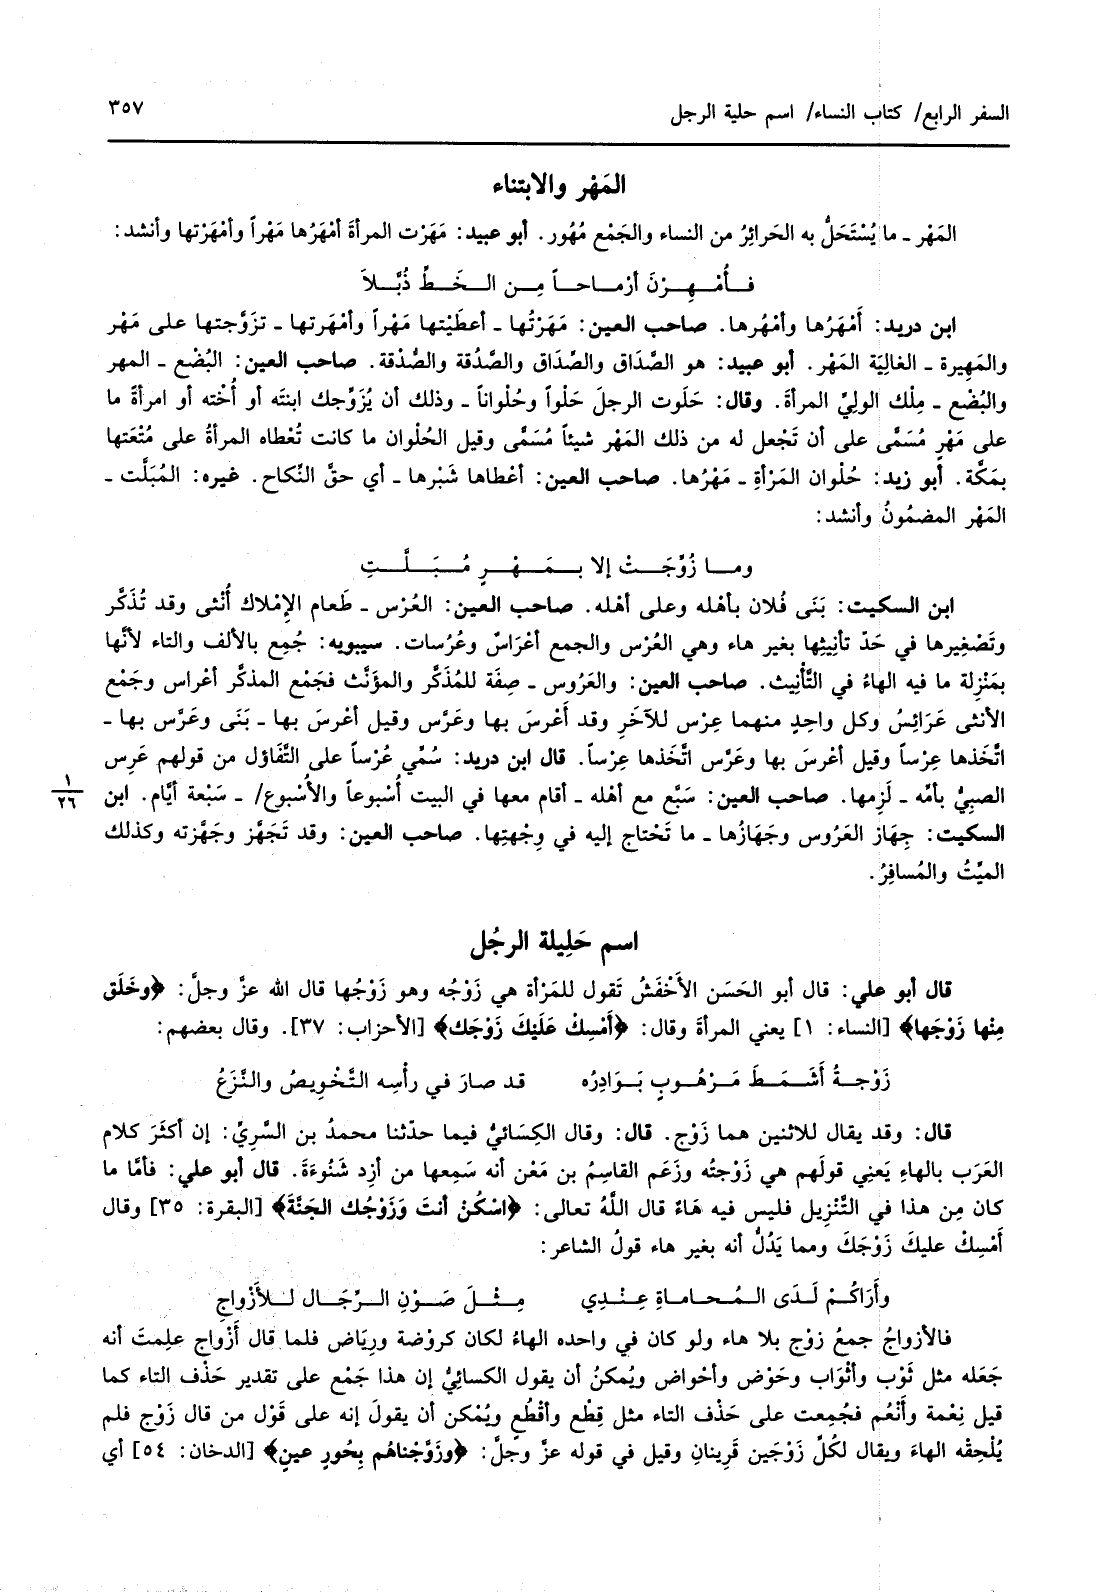 السفر الرابع/ كتاب النساء/ اسم حلية الرجل ٣٥٧
المَهْر والابتناء
المَهْر ـ ما يُسْتَحَلُّ به الحَرائِرُ من النساء والجَمْع مُهُور. أبو عبيد: مَهَرْت المرأةَ أمْهَرُها مَهْراً وأمْهَرْتها وأنشد:
فـأُمْـهِـرْنَ أرْمـاحـاً مِـن الـخَـطِّ ذُبَّلاَ
ابن دريد: أَمْهَرُها وأمْهُرها. صاحب العين: مَهَرْتُها ـ أعطَيْتها مَهْراً وأمْهَرتها ـ تزوَّجتها على مَهْر
والمَهِيرة ـ الغالِيَة المَهْر. أبو عبيد: هو الصَّدَاق والصِّدَاق والصَّدُقة والصُّدْقة. صاحب العين: البُضْع ـ المهر
والبُضْع ـ مِلْك الولِيِّ المرأةَ. وقال: حَلَوت الرجلَ حَلْواً وحُلْواناً ـ وذلك أن يُزَوِّجك ابنتَه أو أُخْته أو امرأةً ما
على مَهْرٍ مُسَمًّى على أن تَجْعل له من ذلك المَهْر شيئاً مُسَمًّى وقيل الحُلْوان ما كانت تُعْطاه المرأةُ على مُتْعَتها
بمَكَّة. أبو زيد: حُلْوان المَرْأةِ ـ مَهْرُها. صاحب العين: أعْطاها شَبْرها ـ أي حقَّ النِّكاح. غيره: المُبَلَّت ـ
المَهْر المضمُونُ وأنشد:
ومـا زُوِّجَـتْ إلا بـمَـهْـرٍ مُـبَـلَّـتِ
ابن السكيت: بَنَى فُلان بأهْله وعلى أهْله. صاحب العين: العُرْس ـ طَعام الإمْلاك أُنْثى وقد تُذَكَّر
وتَصْغِيرها في حَدّ تأنِيثِها بغير هاء وهي العُرْس والجمع أعْرَاسٌ وعُرُسات. سيبويه: جُمِع بالألف والتاء لأنَّها
بمَنْزِلة ما فيه الهاءُ في التَّأْنِيث. صاحب العين: والعَرُوس ـ صِفَة للمُذَكَّر والمؤنَّث فجَمْع المذكَّر أعْراس وجَمْع
الأنثى عَرَائِسُ وكل واحِدٍ منهما عِرْس للآخَرِ وقد أَعْرسَ بها وعَرَّس وقيل أعْرسَ بها ـ بَنَى وعَرَّس بها ـ
اتَّخَذها عِرْساً وقيل أعْرسَ بها وعَرَّس اتَّخَذها عِرْساً. قال ابن دريد: سُمِّي عُرْساً على التَّفَاؤل من قولهم عَرِس
الصبِيُّ بأمّه ـ لَزِمها. صاحب العين: سَبَّع مع أهله ـ أقام معها في البيت أُسْبوعاً والأُسْبوع/ ـ سَبْعة أيَّام. ابن
١
٢٦
السكيت: جِهَاز العَرُوس وجَهَازُها ـ ما تَحْتاج إليه في وِجْهتِها. صاحب العين: وقد تَجَهَّز وجَهَّزته وكذلك
الميِّتُ والمُسافِرُ.
اسم حَلِيلة الرجُل
قال أبو علي: قال أبو الحَسَن الأخْفَشُ تَقول للمَرْأة هي زَوْجُه وهو زَوْجُها قال الله عزَّ وجلَّ: ﴿وخَلَق
مِنْها زَوْجَها﴾ [النساء: ١] يعني المرأةَ وقال: ﴿أَمْسِكْ عَلَيْكَ زَوْجَك﴾ [الأحزاب: ٣٧]. وقال بعضهم:
زَوْجـةُ أَشَـمَـطَ مَـرْهُـوبٍ بَـوَادِرُه قد صارَ في رأسِه التَّخْويصُ والنَّزَعُ
قال: وقد يقال للاثنين هما زَوْج. قال: وقال الكِسَائيُّ فيما حدّثنا محمدُ بن السَّرِيِّ: إن أكثَرَ كلام
العَرَب بالهاءِ يَعنِي قولَهم هي زَوْجتُه وزَعَم القاسِمُ بن مَعْن أنه سَمِعها من أزْدِ شَنُوءَةَ. قال أبو علي: فأمَّا ما
كان مِن هذا في التَّنْزِيل فليس فيه هَاءٌ قال اللَّهُ تعالى: ﴿اسْكُنْ أنتَ وَزَوْجُك الجَنَّةَ﴾ [البقرة: ٣٥] وقال
أَمْسِكْ عليكَ زَوْجَكَ ومما يَدُلُّ أنه بغير هاء قولُ الشاعر:
وأَرَاكُـمْ لَـدَى الـمُـحـاماةِ عِـنْـدِي مِـثْـلَ صَـوْنِ الـرِّجَـال لـلأَزْواجِ
فالأزواجُ جمعُ زوْج بلا هاء ولو كان في واحده الهاءُ لكان كروْضة ورِيَاض فلما قال أَزْواج علِمتَ أنه
جَعَله مثل ثَوْب وأثْوَاب وحَوْض وأحْواض ويُمكنُ أن يقول الكسائِيُّ إن هذا جَمْع على تقدير حَذْف التاء كما
قيل نِعْمة وأَنْعُم فجُمِعت على حَذْف التاء مثل قِطْع وأقْطُعٍ ويُمْكن أن يقولَ إنه على قَوْل من قال زَوْج فلم
يُلْحِقْه الهاءَ ويقال لكُلِّ زَوْجَين قَرِينانِ وقيل في قوله عزَّ وجلَّ: ﴿وزَوَّجْناهُم بِحُورٍ عينٍ﴾ [الدخان: ٥٤] أي